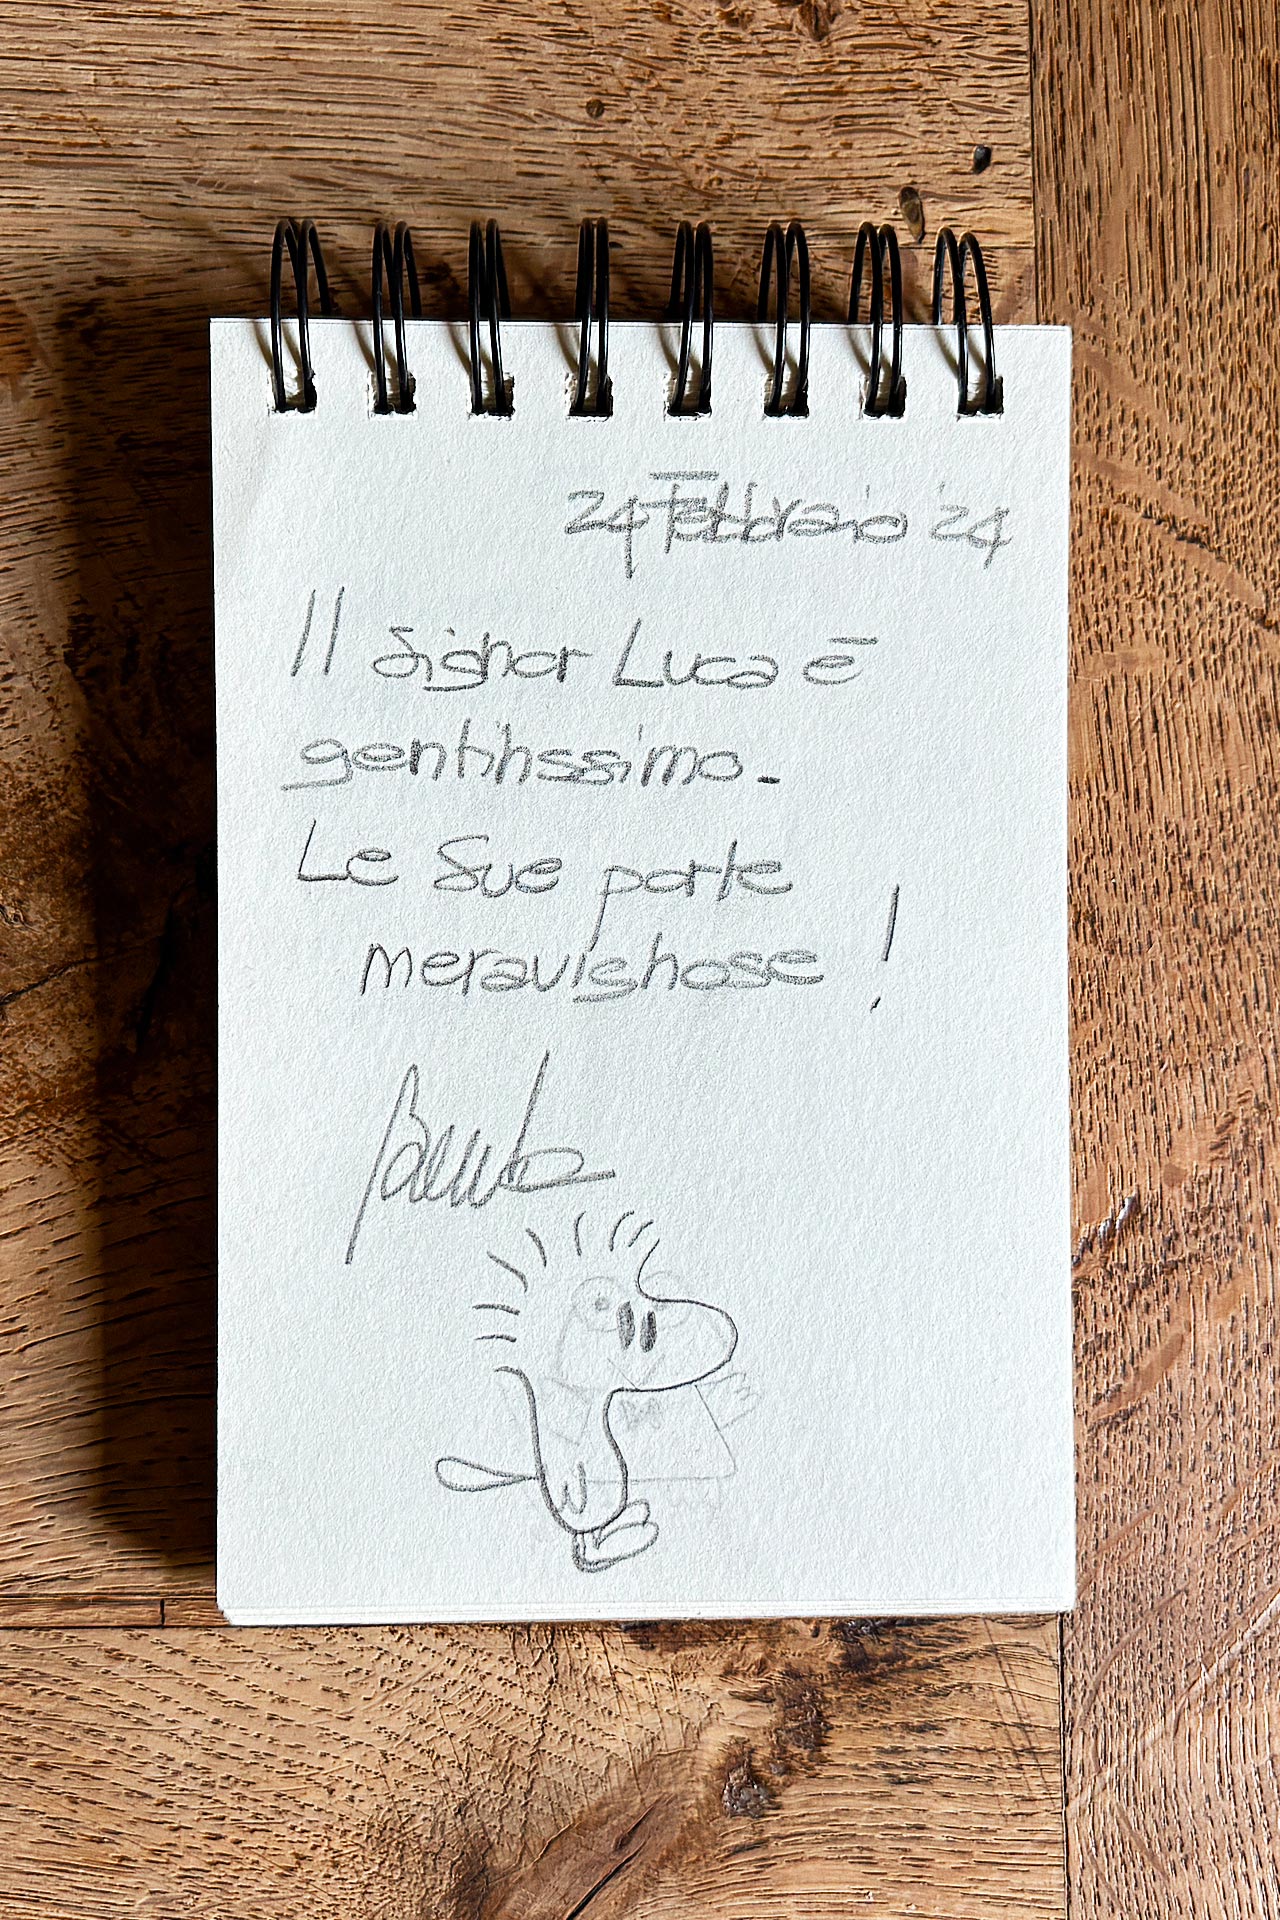 24 Febbraio '24
Il signor Luca è
gentilissimo.
Le Sue porte
meravigliose !